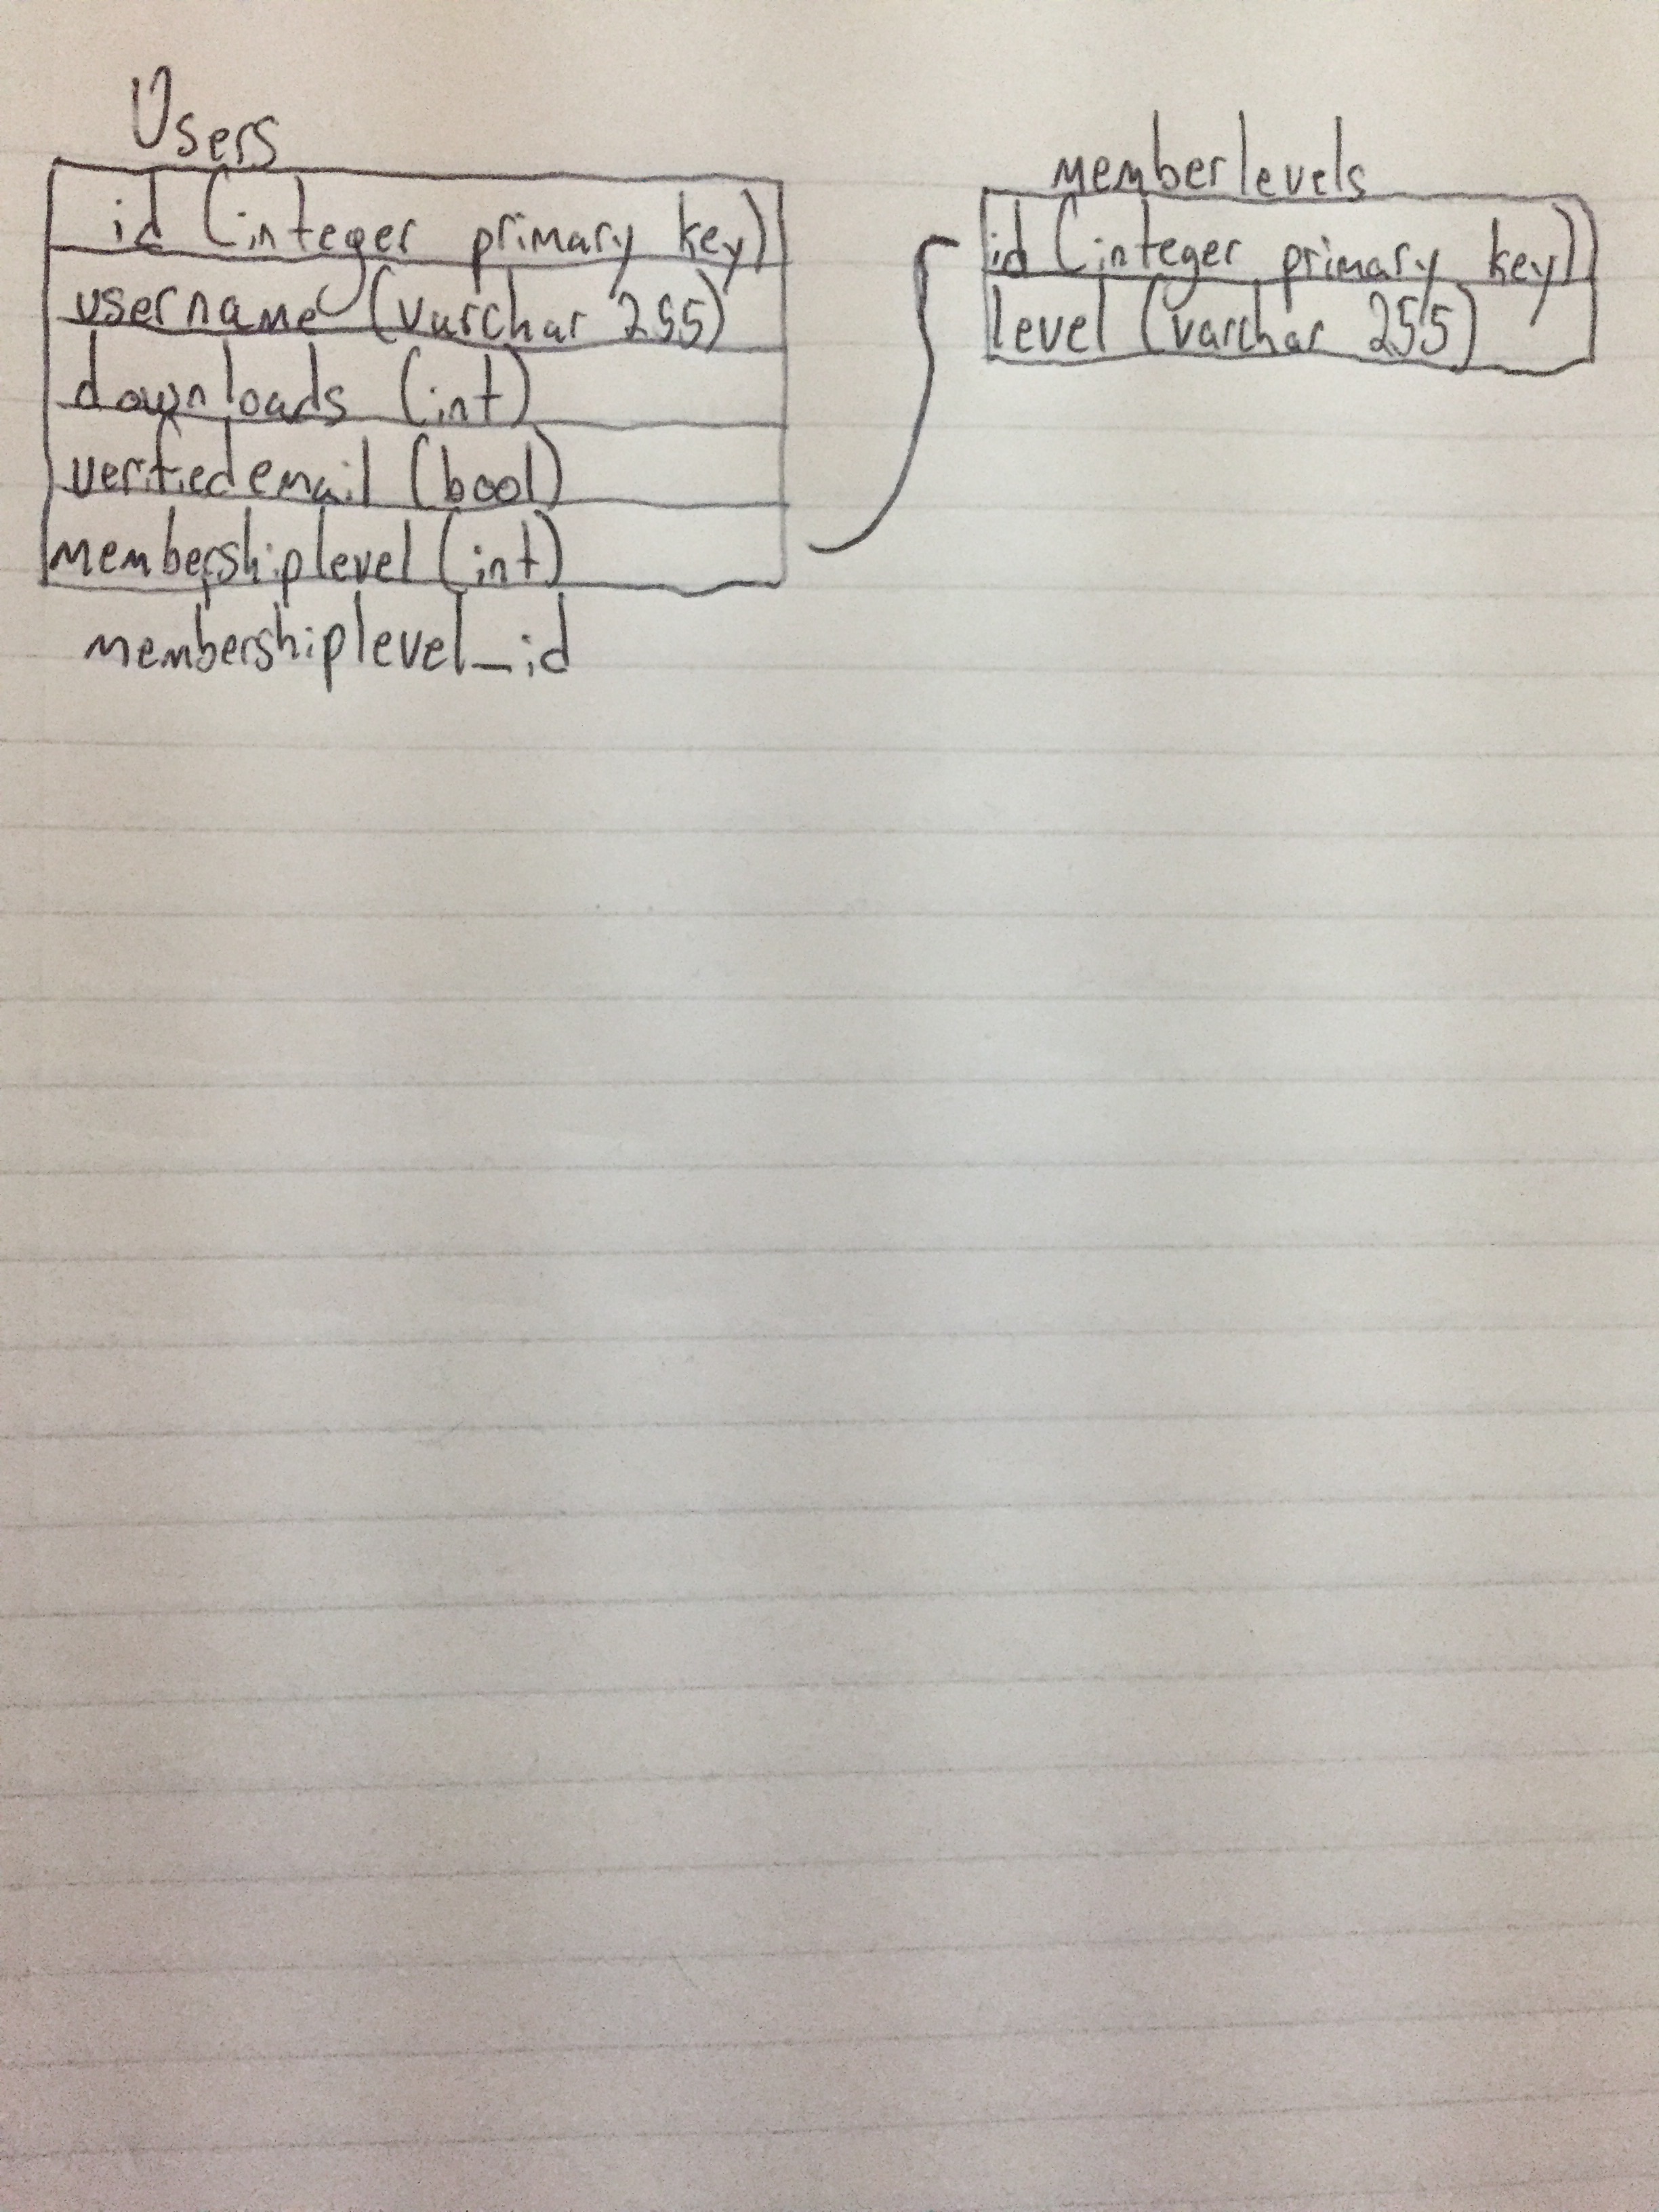 Users
id (integer primary key)
username (varchar 255)
downloads (int)
verifiedemail (bool)
membershiplevel (int)
membershiplevel_id
memberlevels
id (integer primary key)
level (varchar 255)